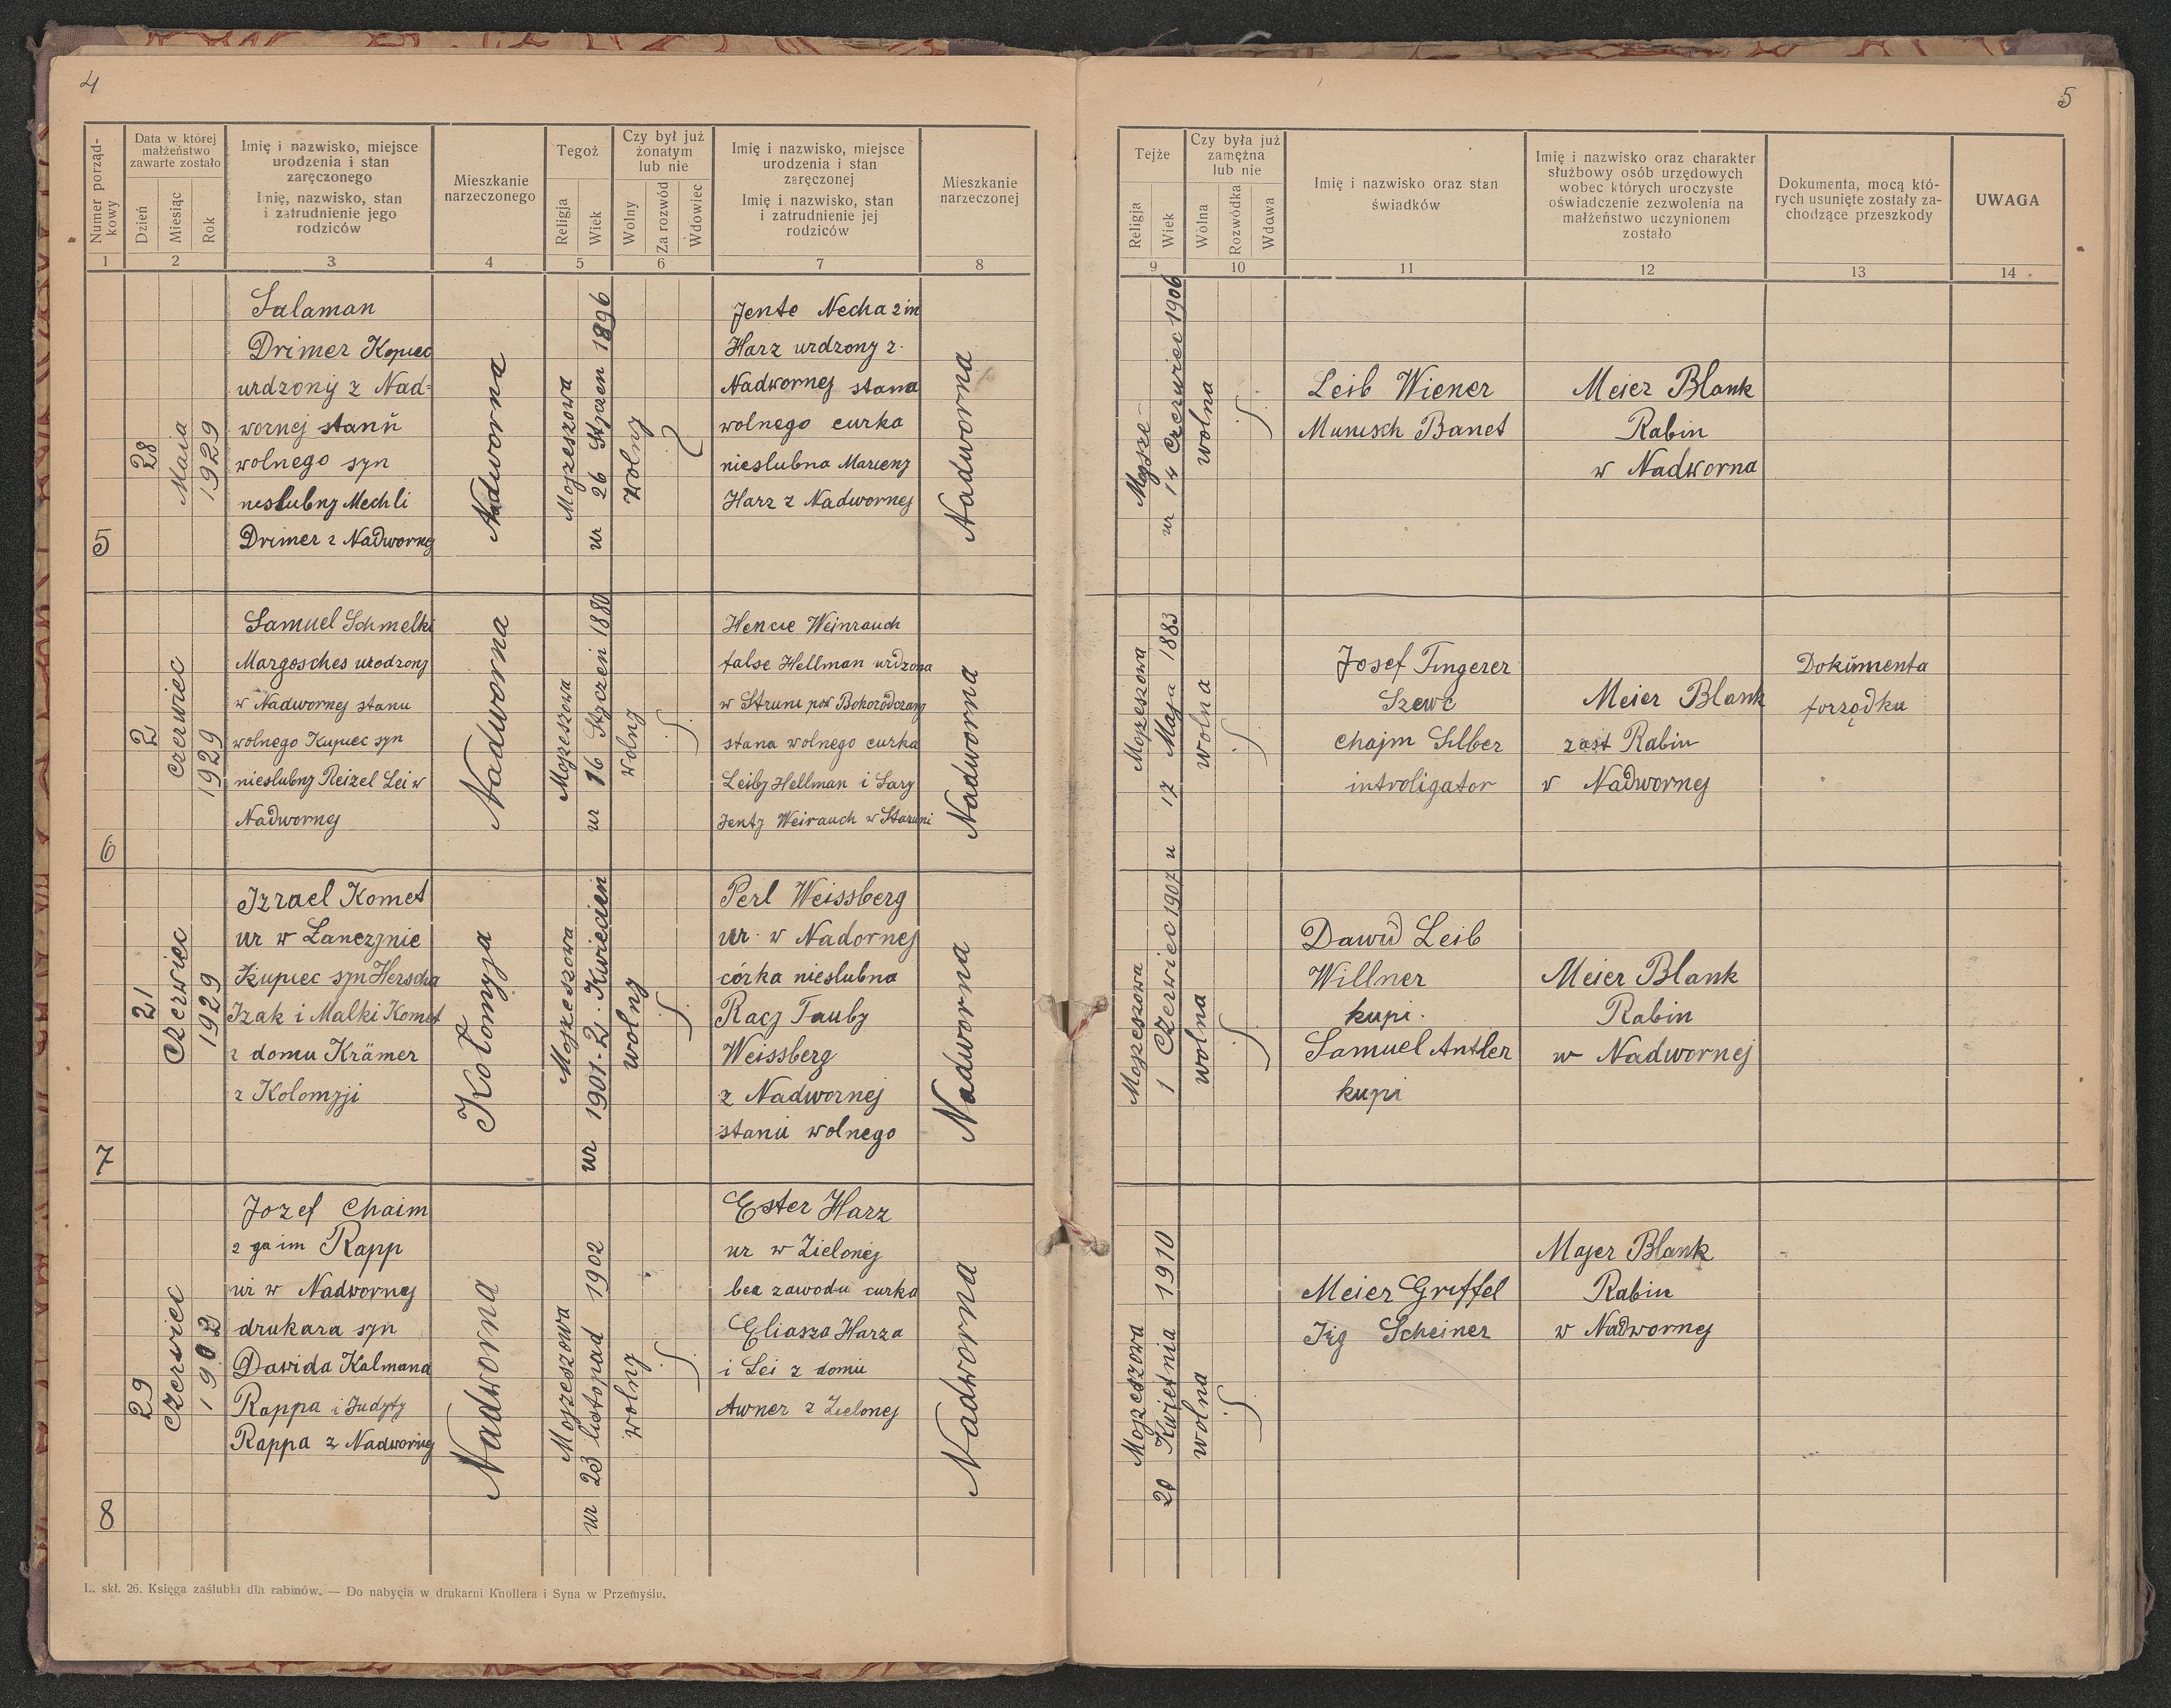 4
5
Numer porząd-
kowy
Data w której
małżeństwo
zawarte zostało
Dzień
Miesiąc
Rok
Imię i nazwisko, miejsce
urodzenia i stan
zaręczonego
Imię, nazwisko, stan
i zatrudnienie jego
rodziców
Mieszkanie
narzeczonego
Tegoż
Religja
Wiek
Czy był już
żonatym
lub nie
Wolny
Za rozwód
Wdowiec
Imię i nazwisko, miejsce
urodzenia i stan
zaręczonej
Imię i nazwisko, stan
i zatrudnienie jej
rodziców
Mieszkanie
narzeczonej
Tejże
Religja
Wiek
Czy była już
zamężna
lub nie
Wolna
Rozwódka
Wdowa
Imię i nazwisko oraz stan
świadków
Imię i nazwisko oraz charakter
służbowy osób urzędowych
wobec których uroczyste
oświadczenie zezwolenia na
małżeństwo uczynionem
zostało
Dokumenta, mocą któ-
rych usunięte zostały za-
chodzące przeszkody
UWAGA
1 2 3 4 5 6 7 8 9 10 11 12 13 14
5
28
Maia
1929
Salaman
Drimer Kopiec
urdzony z Nad-
wornej stanu
wolnego syn
neslubny Mechli
Drimer z Nadwornej
Nadworna
Mojzeszowa
ur 26 Styczen 1896
wolny
Jente Necha 2 im
Harz urdzony z
Nadwornej stana
wolnego curka
nieslubna Marieny
Harz z Nadwornej
Nadworna
Mojsze
ur 14 Czerwiec 1906
wolna
Leib Wiener
Munisch Banet
Meier Blank
Rabin
w Nadworna
6
2
czerwiec
1929
Samuel Schmelki
Margosches urodzony
w Nadwornej stanu
wolnego Kupiec syn
nieslubny Reizel Lei w
Nadwornej
Nadworna
Mojzeszowa
ur 16 Styczeń 1880
wolny
Hencie Weinrauch
false Hellman urdzona
w Struni pow Bohorodczany
stana wolnego curka
Leiby Hellman i Sary
Jenty Weirauch w Staruni
Nadworna
Mojzeszowa
17 Maja 1883
wolna
Josef Tingerer
Szewc
Chajm Silber
introligator
Meier Blank
zast Rabin
w Nadwornej
Dokumenta
forządku
7
21
Czerwiec
1929
Izrael Komet
ur w Łanczynie
Kupiec syn Herscha
Izak i Malki Komet
z domu Krämer
z Kolomyji
Kołomyja
Mojzeszowa
ur 1901 - 2. Kwiecień
wolny
Perl Weissberg
ur. w Nadornej
córka nieslubna
Racy Tauby
Weissberg
z Nadwornej
stanu wolnego
Nadworna
Mojzeszowa
1 Czerwiec 1907 u
wolna
Dawid Leib
Willner
kupi.
Samuel Antler
kupi
Meier Blank
Rabin
w Nadwornej
8
29
Czerwiec
1902
Jozef Chaim
2 ga im Rapp
ur w Nadwornej
drukara syn
Dawida Kalmana
Rappa i Judyty
Rappa z Nadwornej
Nadworna
Mojzeszowa
ur 23 listopad 1902
wolny
Ester Harz
ur w Zielonej
bez zawodu curka
Eliasza Harza
i Lei z domu
Awner z Zielonej
Nadworna
Mojzeszowa
20 Kwietnia 1910
wolna
Meier Griffel
Jig Scheiner
Majer Blank
Rabin
w Nadwornej
L. skł. 26. Księga zaślubin dla rabinów. — Do nabycia w drukarni Knollera i Syna w Przemyślu.